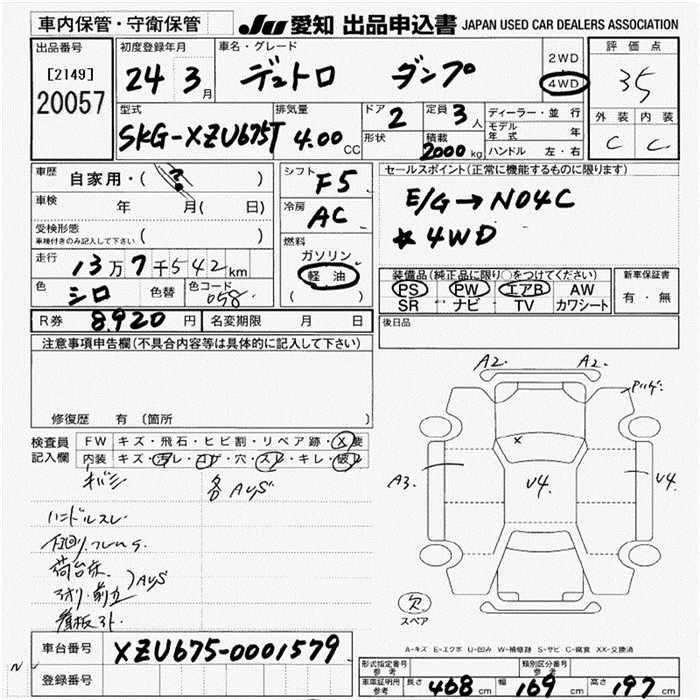 車内保管・守衛保管
JU 愛知 出品申込書 JAPAN USED CAR DEALERS ASSOCIATION
出品番号
[2149]
20057
初度登録年月
24 3 月
車名・グレード
デュトロ ダンプ
2WD
4WD
評価点
35
外装 内装
C C
型式
SKG-XZU675T
排気量
4.00 CC
ドア
2
形状
定員
3 人
積載
2000 kg
ディーラー・並行
モデル年式 年
ハンドル 左・右
車歴 自家用・( )
車検 年 月( 日)
受検形態
車検付きのみ記入して下さい ( )
走行 13万7千542km
色 シロ 色替 色コード 058
R券 8,920 円 名変期限 月 日
シフト
F5
冷房
AC
燃料
ガソリン
軽油
( )
セールスポイント(正常に機能するものに限ります)
E/G→N04C
* 4WD
装備品(純正品に限り○をつけてください)
PS PW エアB AW
SR ナビ TV カワシート
新車保証書
有・無
後日品
注意事項申告欄(不具合内容等は具体的に記入して下さい)
修復歴 有 〔箇所 〕
検査員記入欄
FW キズ・飛石・ヒビ割・リペア跡・X要
内装 キズ・汚レ・コゲ・穴・スレ・キレ・破レ
キバミ
各AUS
ハンドルスレ
下回り
荷台床
アオリ・前立
AUS
看板
A2. A2.
A3. V4 V4.
欠
スペア
A-キズ E-エクボ U-凹み W-補修跡 S-サビ C-腐食 XX-交換済
車台番号 XZU675-0001579
登録番号
N
形式指定番号 参考
類別区分番号 参考
車庫証明用 参考 長さ 468 cm 幅 169 cm 高さ 197 cm